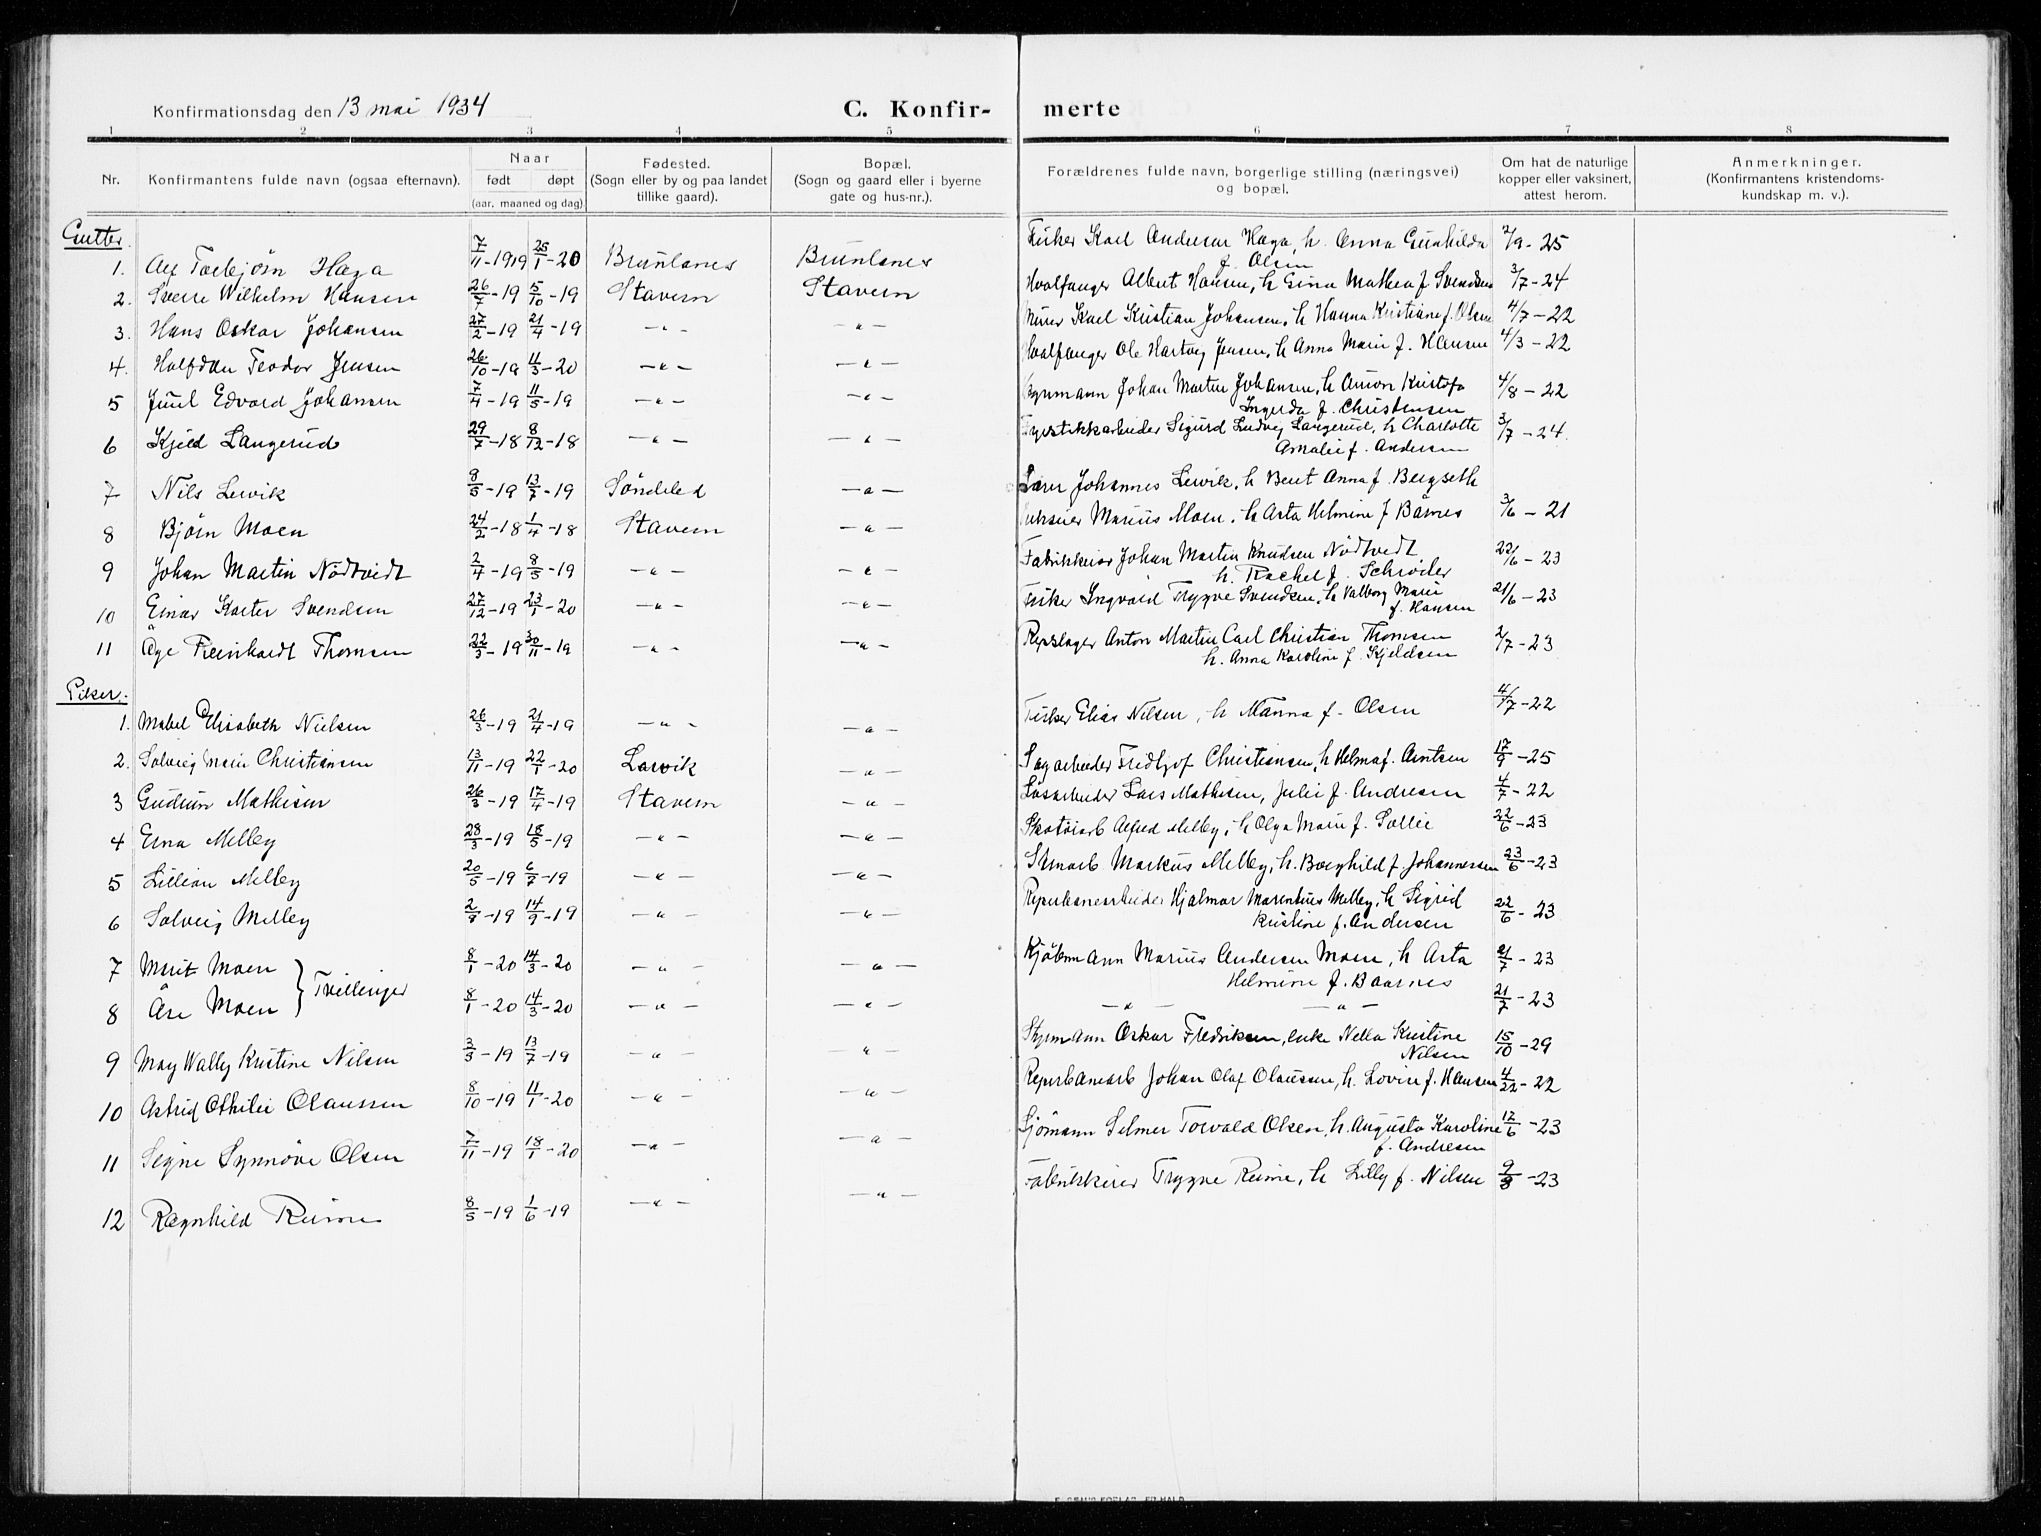 Konfirmationsdag den 13 mai 1934
C. Konfir- merte
1 2 3 4 5 6 7 8
Nr. Konfirmantens fulde navn (ogsaa efternavn). Naar født døpt (aar, maaned og dag) Fødested. (Sogn eller by og paa landet tillike gaard). Bopæl. (Sogn og gaard eller i byerne gate og hus-nr.). Forældrenes fulde navn, borgerlige stilling (næringsvei) og bopæl. Om hat de naturlige kopper eller vaksinert, attest herom. Anmerkninger. (Konfirmantens kristendoms- kundskap m. v.).
Gutter.
1. Alf Torbjørn Haga 7/11-1919 25/1-20 Brunlanes Brunlanes Fisker Karl Andersen Haga, h. Anna Gunhilda 2/9-25
f. Olsen
2. Sverre Wilhelm Hansen 26/7-19 5/10-19 Stavern Stavern Hvalfanger Albert Hansen, h Gina Mathea f Svendsen 3/7-24
3. Hans Oskar Johansen 27/2-19 21/4-19 -"- -"- Murer Karl Kristian Johansen, h Hanna Kristiane f. Olsen 4/7-22
4. Halfdan Teodor Jensen 26/10-19 11/3-20 -"- -"- Hvalfanger Ole Hartvig Jensen, h Anna Marie f. Hansen 4/3-22
5 Juul Edvard Johansen 7/4-19 11/5-19 -"- -"- Johan Martin Johansen, h 4/8-22
Ingerda f. Christensen
6 Kjell Langerud 29/7-18 8/12-18 -"- -"- Sigurd Ludvig Langerud, h Charlotte 3/7-24
Amalie f. Andersen
7 Nils Levik 8/5-19 13/7-19 Søndeled -"- Lærer Johannes Levik, h Berit Anna f. Bergseth
8 Bjørn Moen 24/2-18 1/4-18 Stavern -"- Marius Moen, h Asta Helmine f Bårnes 3/6-21
9 Johan Martin Nødtvedt 2/4-19 8/5-19 -"- -"- Fabrikkeier Johan Martin Knudsen Nødtvedt 22/6-23
h. Rachel f. Schrøder
10 Einar Karter Svendsen 27/12-19 23/1-20 -"- -"- Fisker Ingvald Trygve Svendsen, h Valborg Marie 21/6-23
f. Hansen
11 Åge Reinhardt Thomsen 22/3-19 30/11-19 -"- -"- Repslager Anton Martin Carl Christian Thomsen 2/7-23
h. Anna Karoline f. Kjeldsen
Piker.
1. Mabel Elisabeth Nielsen 26/3-19 21/4-19 -"- -"- Fisker Elias Nilsen, h Manna f. Olsen 4/7-22
2. Solveig Marie Christiansen 13/11-19 22/1-20 Larvik -"- Sagarbeider Fredtjof Christiansen, h Helma f. Arntsen 17/9-25
3 Gudrun Mathisen 26/3-19 17/4-19 Stavern -"- Løsarbeider Lars Mathisen, Julie f. Andresen 4/7-22
4 Erna Melby 28/3-19 18/5-19 -"- -"- Skotøiarb Alfred Melby, h Olga Marie f. Sollie 22/6-23
5 Lillian Melby 20/5-19 6/7-19 -"- -"- Stenarb Markus Melby, h. Borghild f. Johannessen 23/6-23
6 Solveig Melby 2/8-19 14/9-19 -"- -"- Reperbanearbeider Hjalmar Marentius Melby, h Sigrid 22/6-23
Kristine f. Andersen
7 Marit Moen 8/1-20 14/3-20 -"- -"- Kjøbmann Marius Andersen Moen, h Asta 21/7-23
Tvillinger Helmine f. Baarnes
8 Åse Moen 8/1-20 14/3-20 -"- -"- -"- -"- 21/7-23
9 May Wally Kristine Nilsen 3/3-19 13/7-19 -"- -"- Styrmann Oskar Fredriksen, enke Nella Kristine 15/10-29
Nilsen
10 Astrid Othilie Olaussen 8/10-19 11/1-20 -"- -"- Reperbanearb Johan Olaf Olaussen, h. Lovine f. Hansen 4/22-22
11 Signe Synnøve Olsen 7/11-19 18/1-20 -"- -"- Sjømann Selmer Torvald Olsen, h. Augusta Karoline 17/6-23
f. Andresen
12 Ragnhild Reime 8/5-19 1/6-19 -"- -"- Fabrikkeier Trygve Reime, h Lilly f. Nilsen 9/8-23